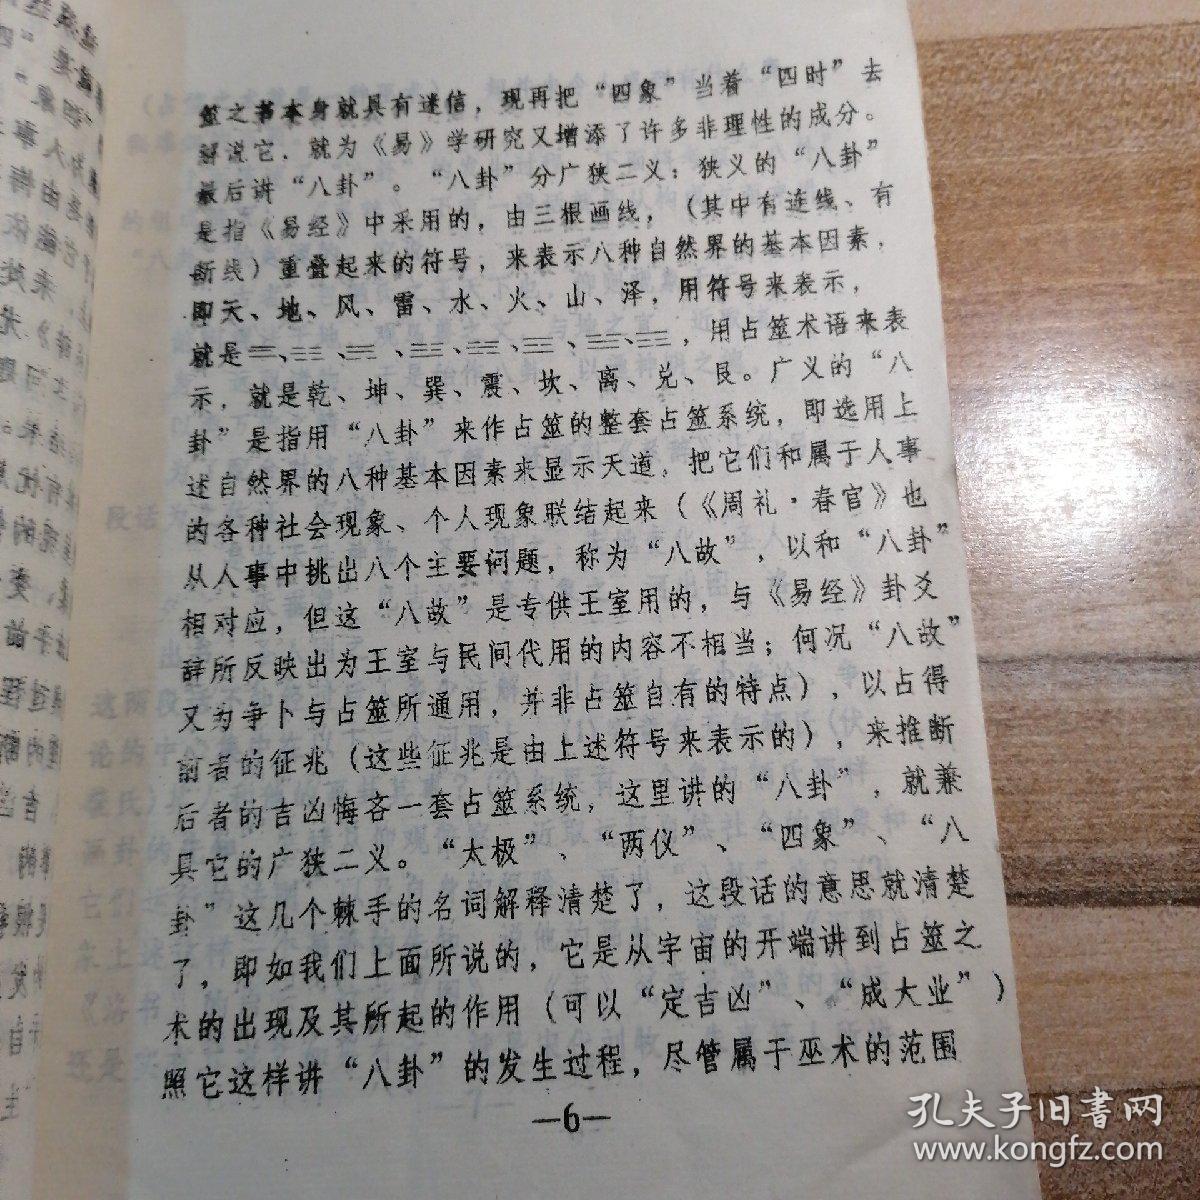 筮之书本身就具有迷信，现再把“四象”当着“四时”去
解说它．就为《易》学研究又增添了许多非理性的成分。
最后讲“八卦”。“八卦”分广狭二义；狭义的“八卦”
是指《易经》中采用的，由三根画线，（其中有连线、有
断线）重叠起来的符号，来表示八种自然界的基本因素，
即天、地、风、雷、水、火、山、泽，用符号来表示，
就是 ，用占筮术语来表
示，就是乾、坤、巽、震、坎、离、兑、艮。广义的“八
卦”是指用“八卦”来作占筮的整套占筮系统，即选用上
述自然界的八种基本因素来显示天道，把它们和属于人事
的各种社会现象、个人现象联结起来（《周礼·春官》也
从人事中挑出八个主要问题，称为“八故”，以和“八卦”
相对应，但这“八故”是专供王室用的，与《易经》卦爻
辞所反映出为王室与民间代用的内容不相当；何况“八故”
又为争卜与占筮所通用，并非占筮自有的特点），以占得
前者的征兆（这些征兆是由上述符号来表示的），来推断
后者的吉凶悔吝一套占筮系统，这里讲的“八卦”，就兼
具它的广狭二义。“太极”、“两仪”、“四象”、“八
卦”这几个棘手的名词解释清楚了，这段话的意思就清楚
了，即如我们上面所说的，它是从宇宙的开端讲到占筮之
术的出现及其所起的作用（可以“定吉凶”、“成大业”）
照它这样讲“八卦”的发生过程，尽管属于巫术的范围
—6—
孔夫子旧书网
www.kongfz.com